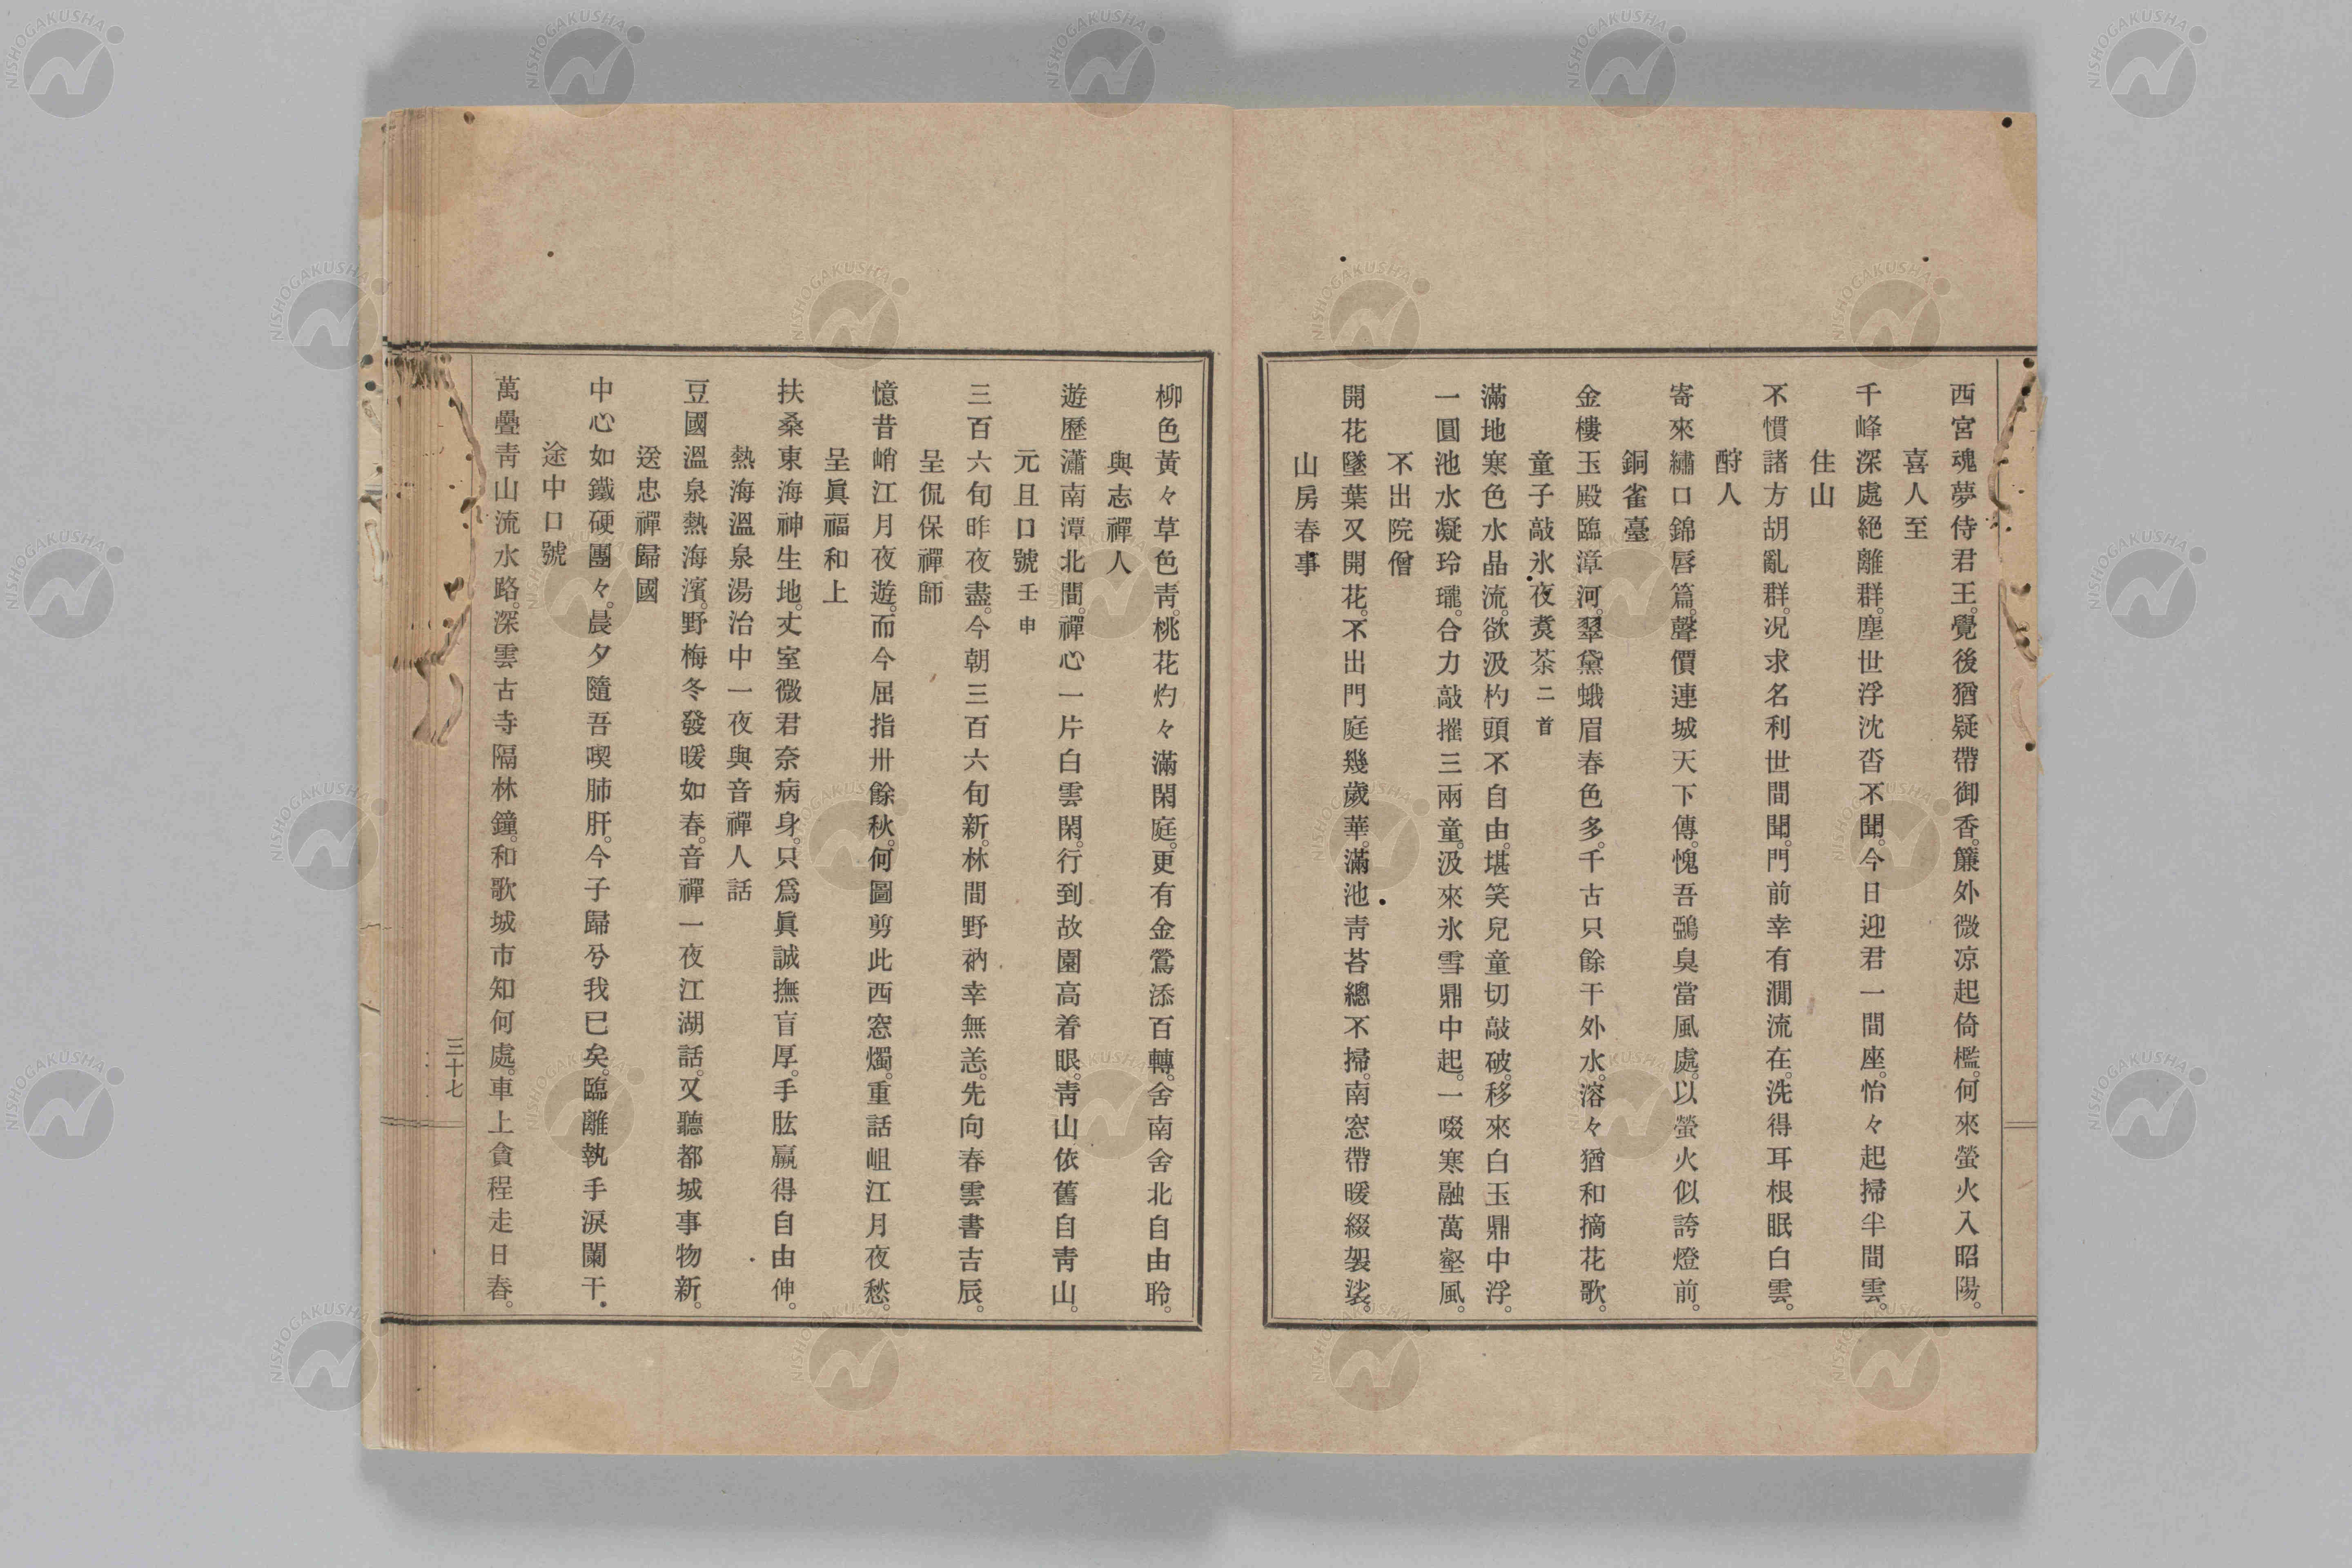 西宮魂夢侍君王。覺後猶疑帶御香。簾外微凉起倚檻。何來螢火入昭陽。
喜人至
千峰深處絕離群。塵世浮沈杳不聞。今日迎君一間座。怡々起掃半間雲。
住山
不慣諸方胡亂群。况求名利世間聞。門前幸有澗流在。洗得耳根眠白雲。
酧人
寄來繡口錦唇篇。聲價連城天下傳。愧吾鵶臭當風處。以螢火似誇燈前。
銅雀臺
金樓玉殿臨漳河。翠黛蛾眉春色多。千古只餘干外水。溶々猶和摘花歌。
童子敲氷夜煑茶二首
滿地寒色水晶流。欲汲杓頭不自由。堪笑兒童切敲破。移來白玉鼎中浮。
一圓池水凝玲瓏。合力敲摧三兩童。汲來氷雪鼎中起。一啜寒融萬壑風。
不出院僧
開花墜葉又開花。不出門庭幾歲華。滿池靑苔總不掃。南窓帶暖綴袈裟。
山房春事
柳色黃々草色靑。桃花灼々滿閑庭。更有金鶯添百轉。舍南舍北自由聆。
與志禪人
遊歷瀟南潭北間。禪心一片白雲閑。行到故園高着眼。靑山依舊自靑山。
元且口號壬申
三百六旬昨夜盡。今朝三百六旬新。林間野衲幸無恙。先向春雲書吉辰。
呈侃保禪師
憶昔峭江月夜遊。而今屈指卅餘秋。何圖剪此西窓燭。重話岨江月夜愁。
呈眞福和上
扶桑東海神生地。丈室微君奈病身。只爲眞誠撫盲厚。手肱贏得自由伸。
熱海溫泉湯治中一夜與音禪人話
豆國溫泉熱海濱。野梅冬發暖如春。音禪一夜江湖話。又聽都城事物新。
送忠禪歸國
中心如鐵硬團々。晨夕隨吾喫肺肝。今子歸兮我已矣。臨離執手淚闌干。
途中口號
萬疊靑山流水路。深雲古寺隔林鐘。和歌城市知何處。車上貪程走日舂。
三十七
NISHOGAKUSHA